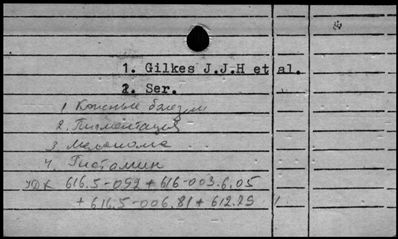 1. Gilkes J.J.H et al.
2. Ser.
1. Кожные болезни
2. Пигментация
3. Меланома
4. Гистамин
УДК 616.5-092 + 616-003.6.05
+ 616.5-006.81 + 612.79